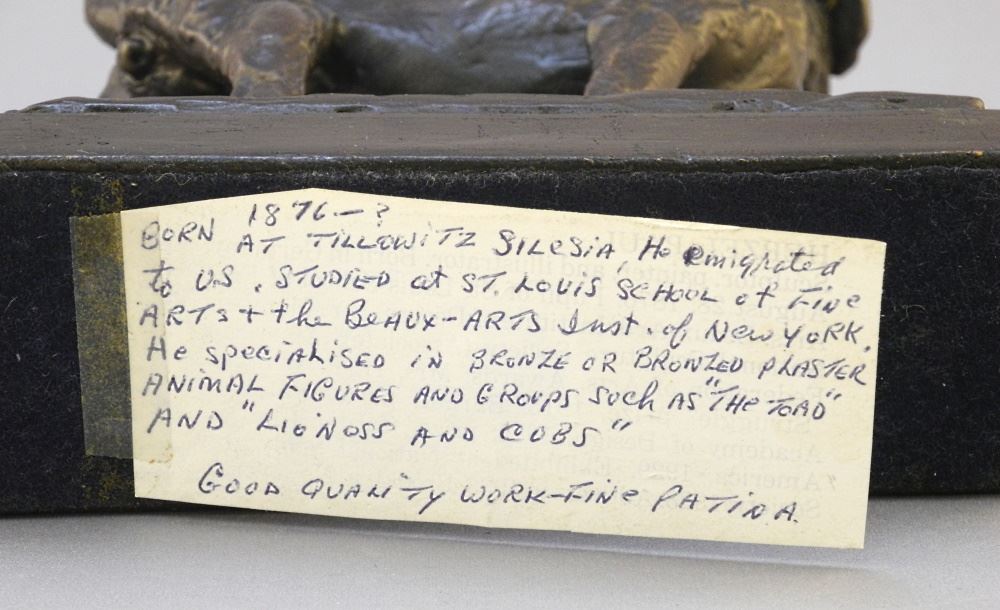 BORN 1876-?
AT TILLOWITZ SILESIA, He emigrated
to U.S. STUDIED at ST. LOUIS SCHOOL of FINE
ARTS + the BEAUX-ARTS Inst. of NEW YORK.
He specialised in BRONZE OR BRONZED PLASTER
ANIMAL FIGURES AND GROUPS such AS "THE TOAD"
AND "LIONOSS AND CUBS"
GOOD QUALITY WORK-FINE PATINA.